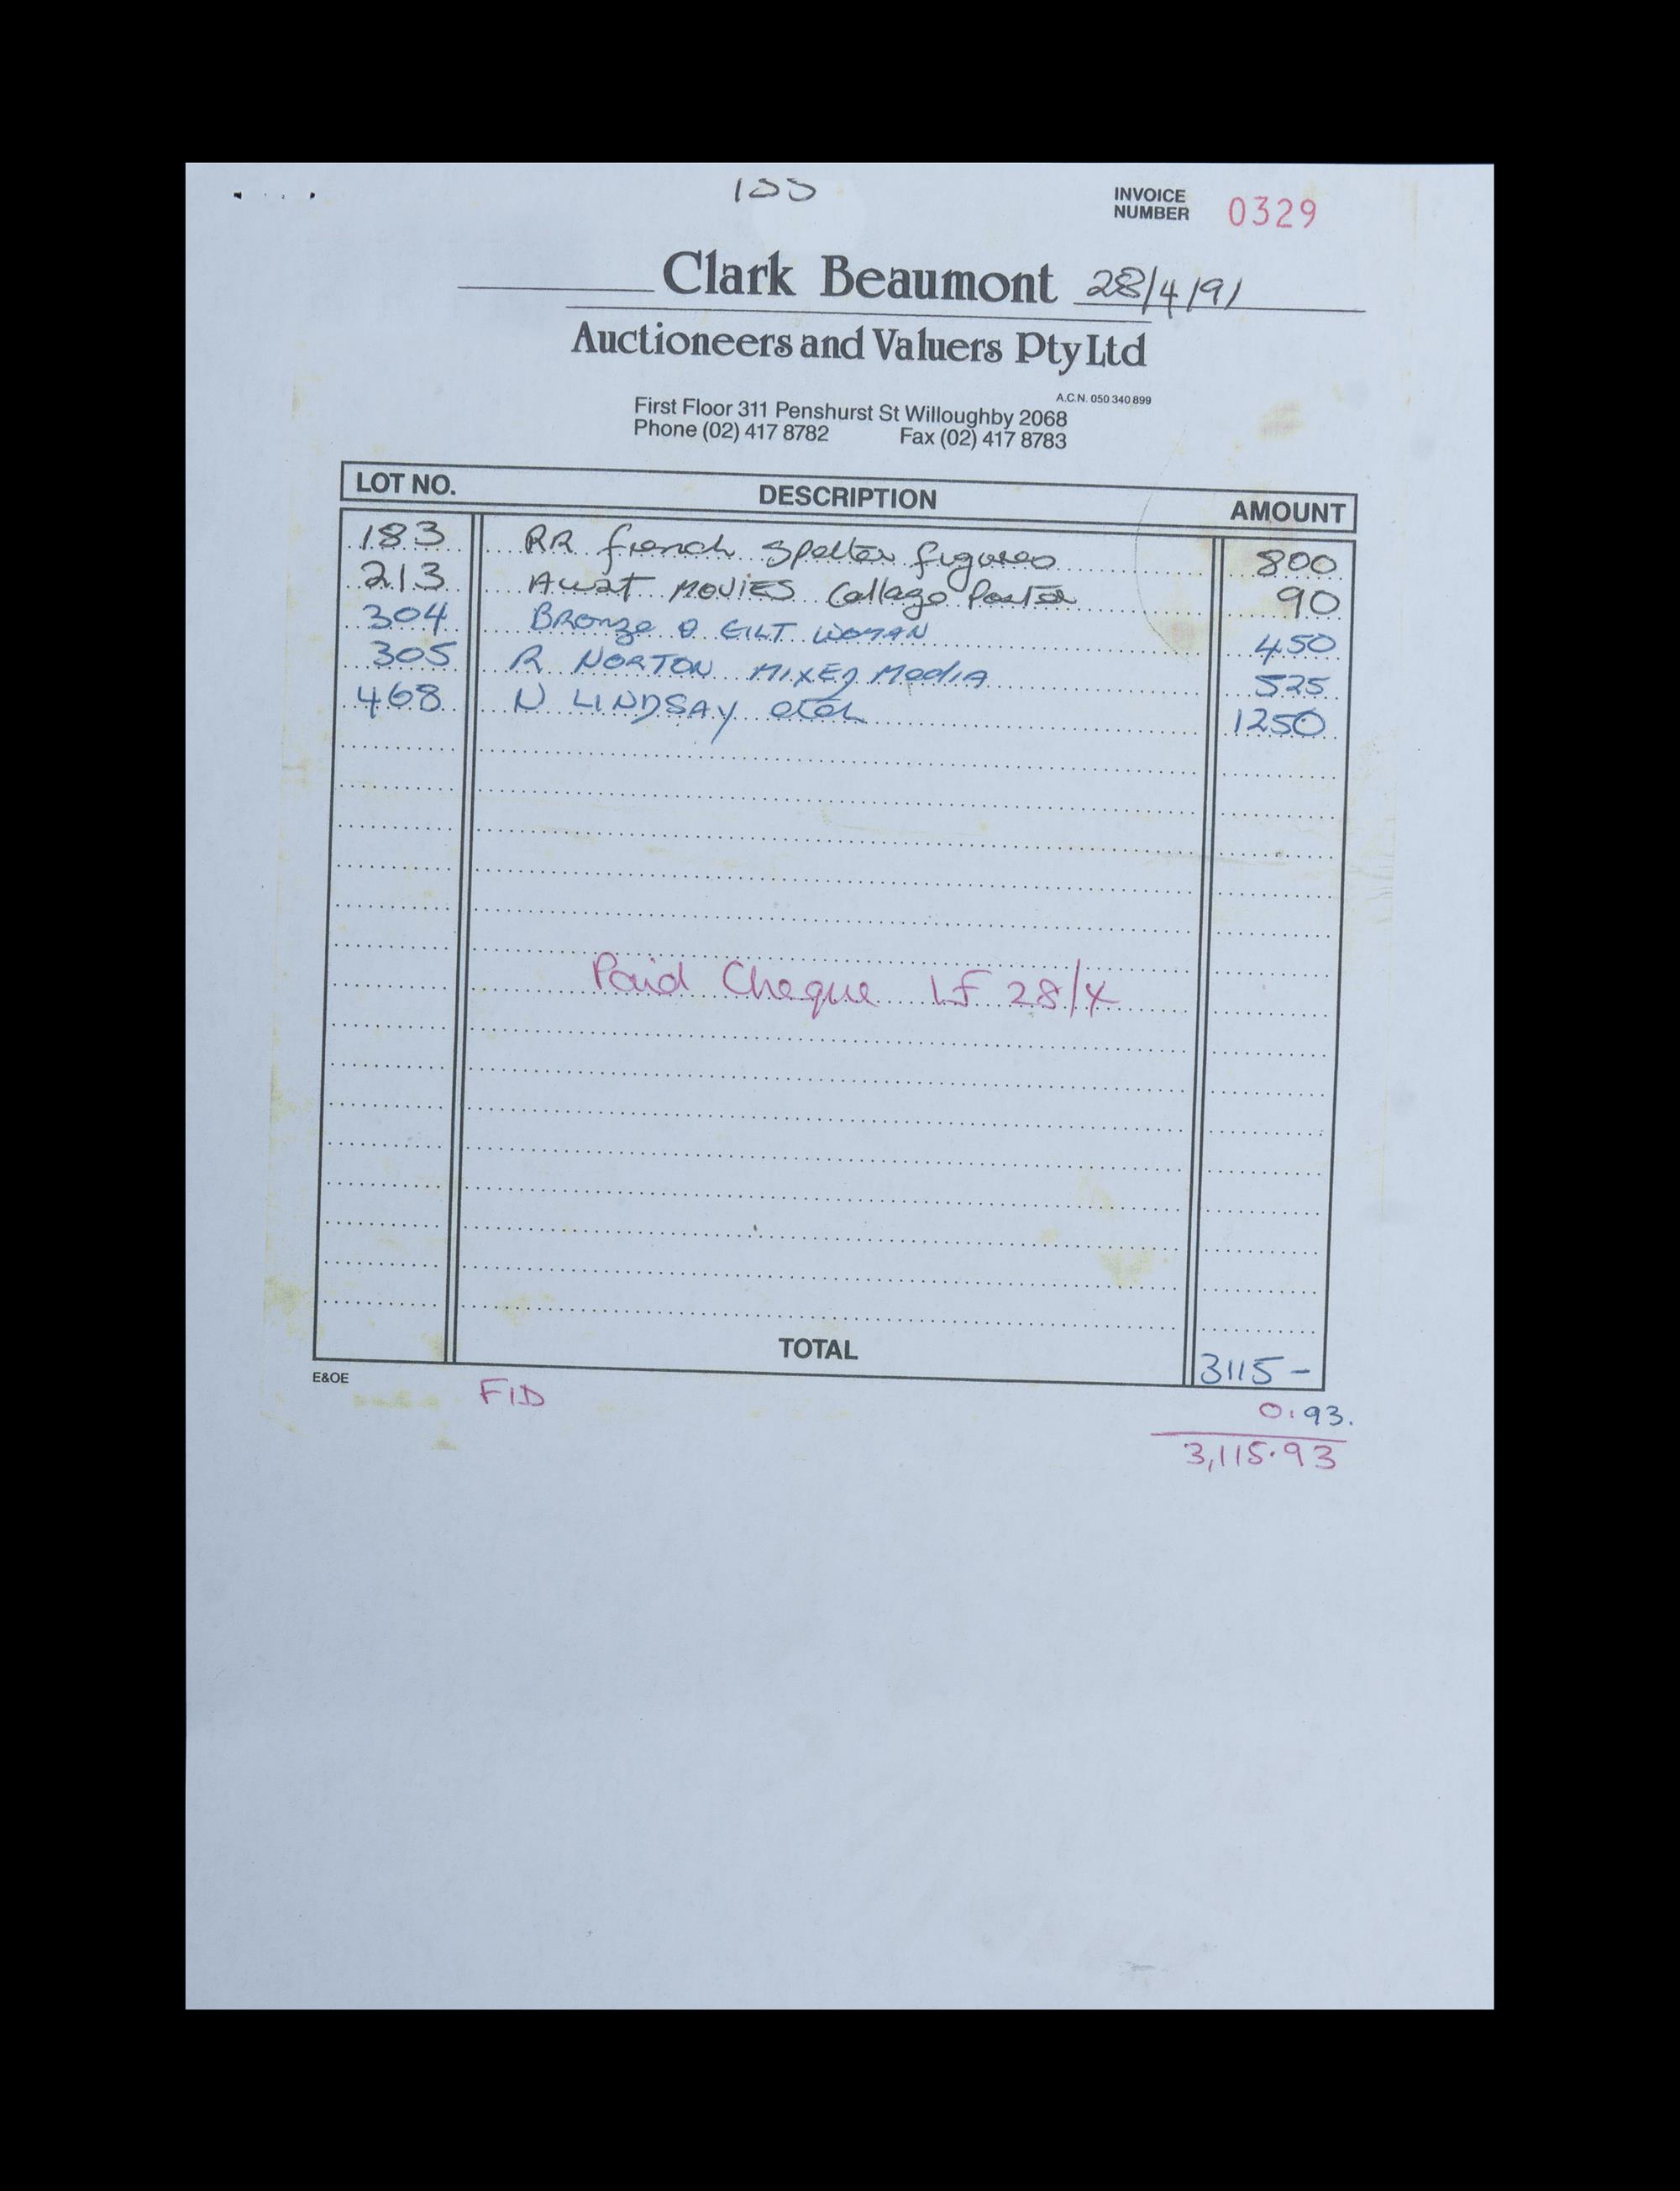 155
INVOICE
NUMBER 0329
Clark Beaumont 28/4/91
Auctioneers and Valuers Pty Ltd
A.C.N. 050 340 899
First Floor 311 Penshurst St Willoughby 2068
Phone (02) 417 8782 Fax (02) 417 8783
LOT NO. DESCRIPTION AMOUNT
183 RR french Spelter figures 800
213 Aust MOVIES Collage Poster 90
304 BRonze & GILT WOMAN 450
305 R NORTON MIXED MediA 525
468 N LINDSAY etch 1250
Paid Cheque LF 28/4
TOTAL 3115 -
E&OE
FID 0.93.
3,115.93